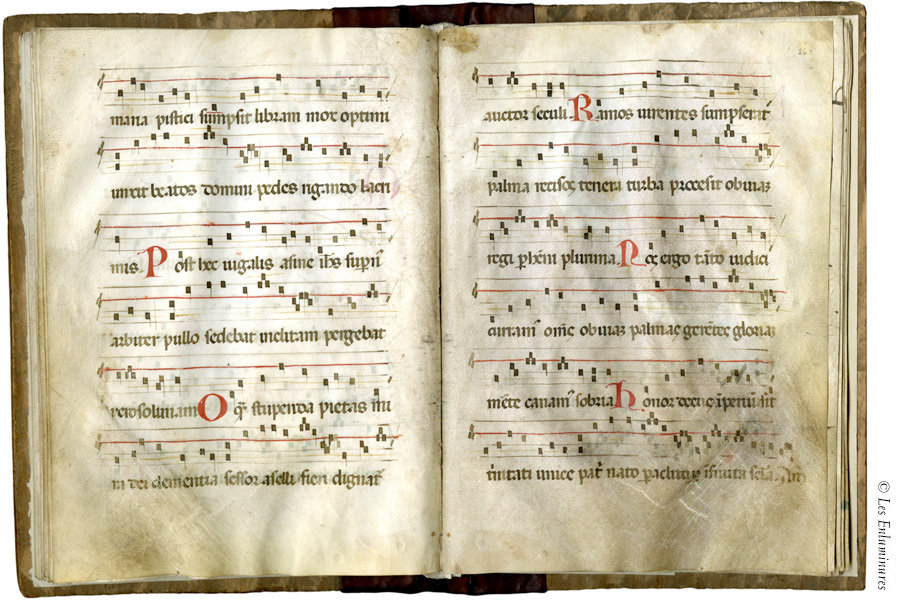 maria pistici sumpsit libram mox optimi
unxit beatos domini pedes rigando lacri
mis. Post hec iugalis asine ih̄s sup̄n̄
arbiter pullo sedebat inclitam pergebat
ierosolimam O q̄ stupenda pietas mi
ra dei clementia sessor aselli fieri dignat᷑
22.
auctor seculi. Ramos uirentes sumpserat
palma recisos tenera turba procesit obuiaʒ
regi ꝑhēni plurima. Nos ergo tanto iudici
curram᷒ om̄s obuiaʒ palmas gerētes gloriaʒ
mēte canam᷒ sobria Honor decus īperiū sit
t̄nitati unice pat̄ nato ꝑaclitoqʒ ifinita scl̄a. Am̄
© Les Enluminures